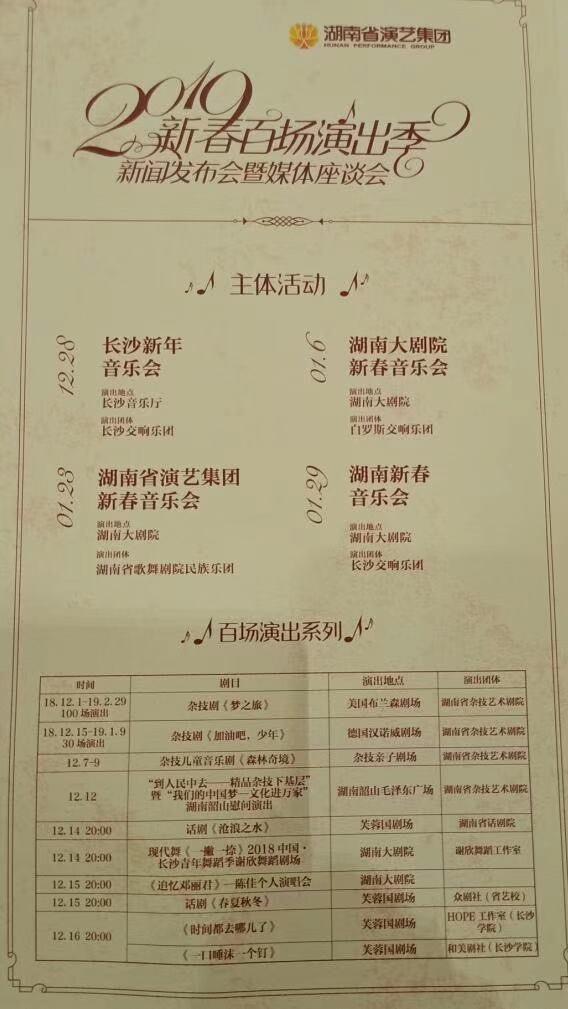 湖南省演艺集团
HUNAN PERFORMANCE GROUP
2019
新春百场演出季
新闻发布会暨媒体座谈会
主体活动
12.28
长沙新年
音乐会
演出地点
长沙音乐厅
演出团体
长沙交响乐团
01.6
湖南大剧院
新春音乐会
演出地点
湖南大剧院
演出团体
白罗斯交响乐团
01.23
湖南省演艺集团
新春音乐会
演出地点
湖南大剧院
演出团体
湖南省歌舞剧院民族乐团
01.29
湖南新春
音乐会
演出地点
湖南大剧院
演出团体
长沙交响乐团
百场演出系列
时间 剧目 演出地点 演出团体
18.12.1-19.2.29
100场演出
杂技剧《梦之旅》 美国布兰森剧场 湖南省杂技艺术剧院
18.12.15-19.1.9
30场演出
杂技剧《加油吧，少年》 德国汉诺威剧场 湖南省杂技艺术剧院
12.7-9 杂技儿童音乐剧《森林奇境》 杂技亲子剧场 湖南省杂技艺术剧院
12.12
“到人民中去——精品杂技下基层”
暨“我们的中国梦—文化进万家”
湖南韶山慰问演出
湖南韶山毛泽东广场 湖南省杂技艺术剧院
12.14 20:00 话剧《沧浪之水》 芙蓉国剧场 湖南省话剧院
12.14 20:00
现代舞《一撇一捺》2018中国·
长沙青年舞蹈季谢欣舞蹈剧场
湖南大剧院 谢欣舞蹈工作室
12.15 20:00 《追忆邓丽君》—陈佳个人演唱会 湖南大剧院
12.15 20:00 话剧《春夏秋冬》 芙蓉国剧场 众剧社（省艺校）
12.16 20:00
《时间都去哪儿了》 芙蓉国剧场
HOPE工作室（长沙
学院）
《一口唾沫一个钉》 芙蓉国剧场 和美剧社（长沙学院）